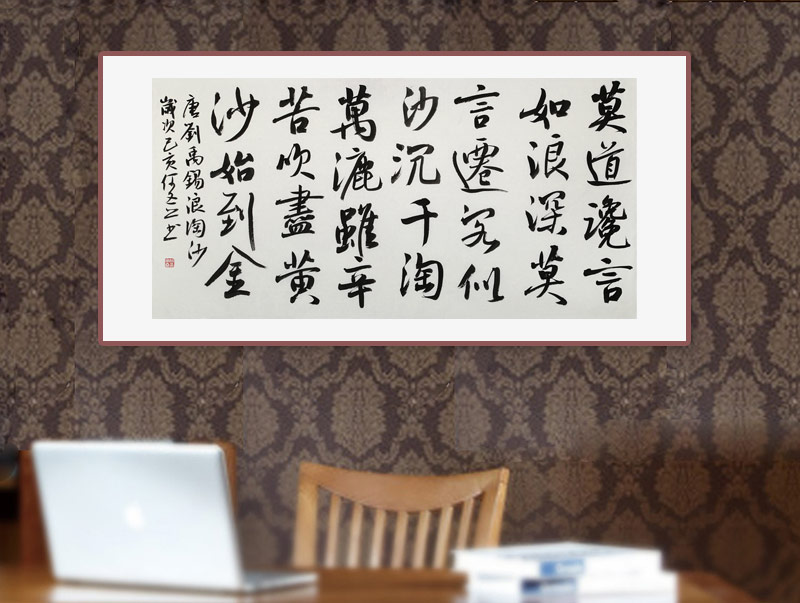 莫道讒言
如浪深莫
言遷客似
沙沉千淘
萬漉雖辛
苦吹盡黄
沙始到金
唐劉禹錫浪淘沙
歲次己亥何書